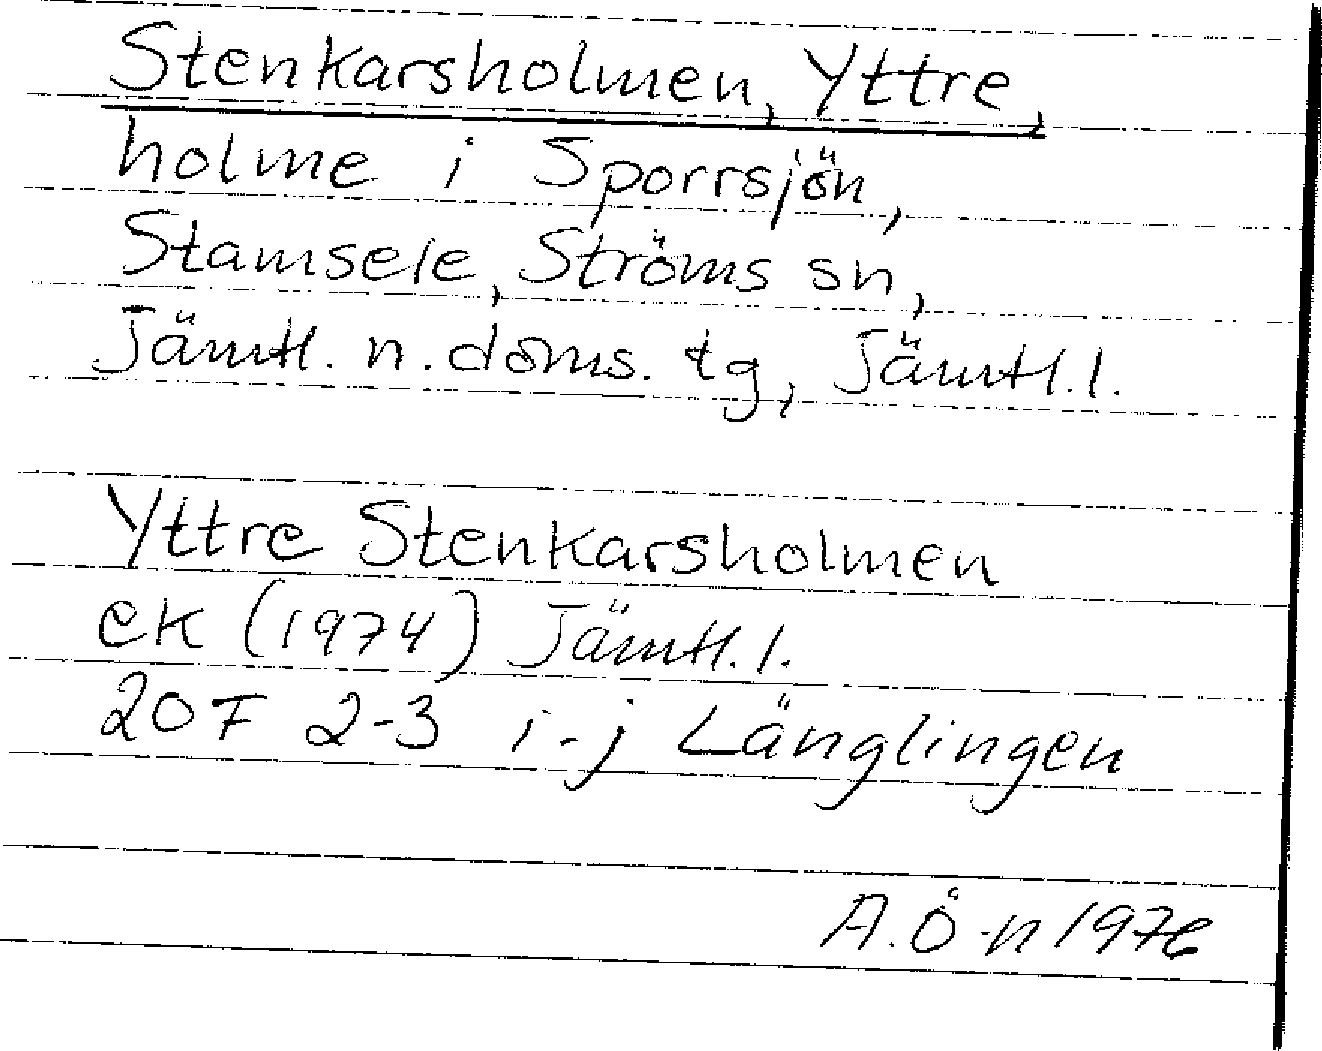 Stenkarsholmen, Yttre,
holme i Sporrsjön,
Stamsele, Ströms sn,
Jämtl. n. doms. tg, Jämtl. l.
Yttre Stenkarsholmen
ek (1974) Jämtl. l.
20F 2-3 i-j Länglingen
A. Ö-n 1976